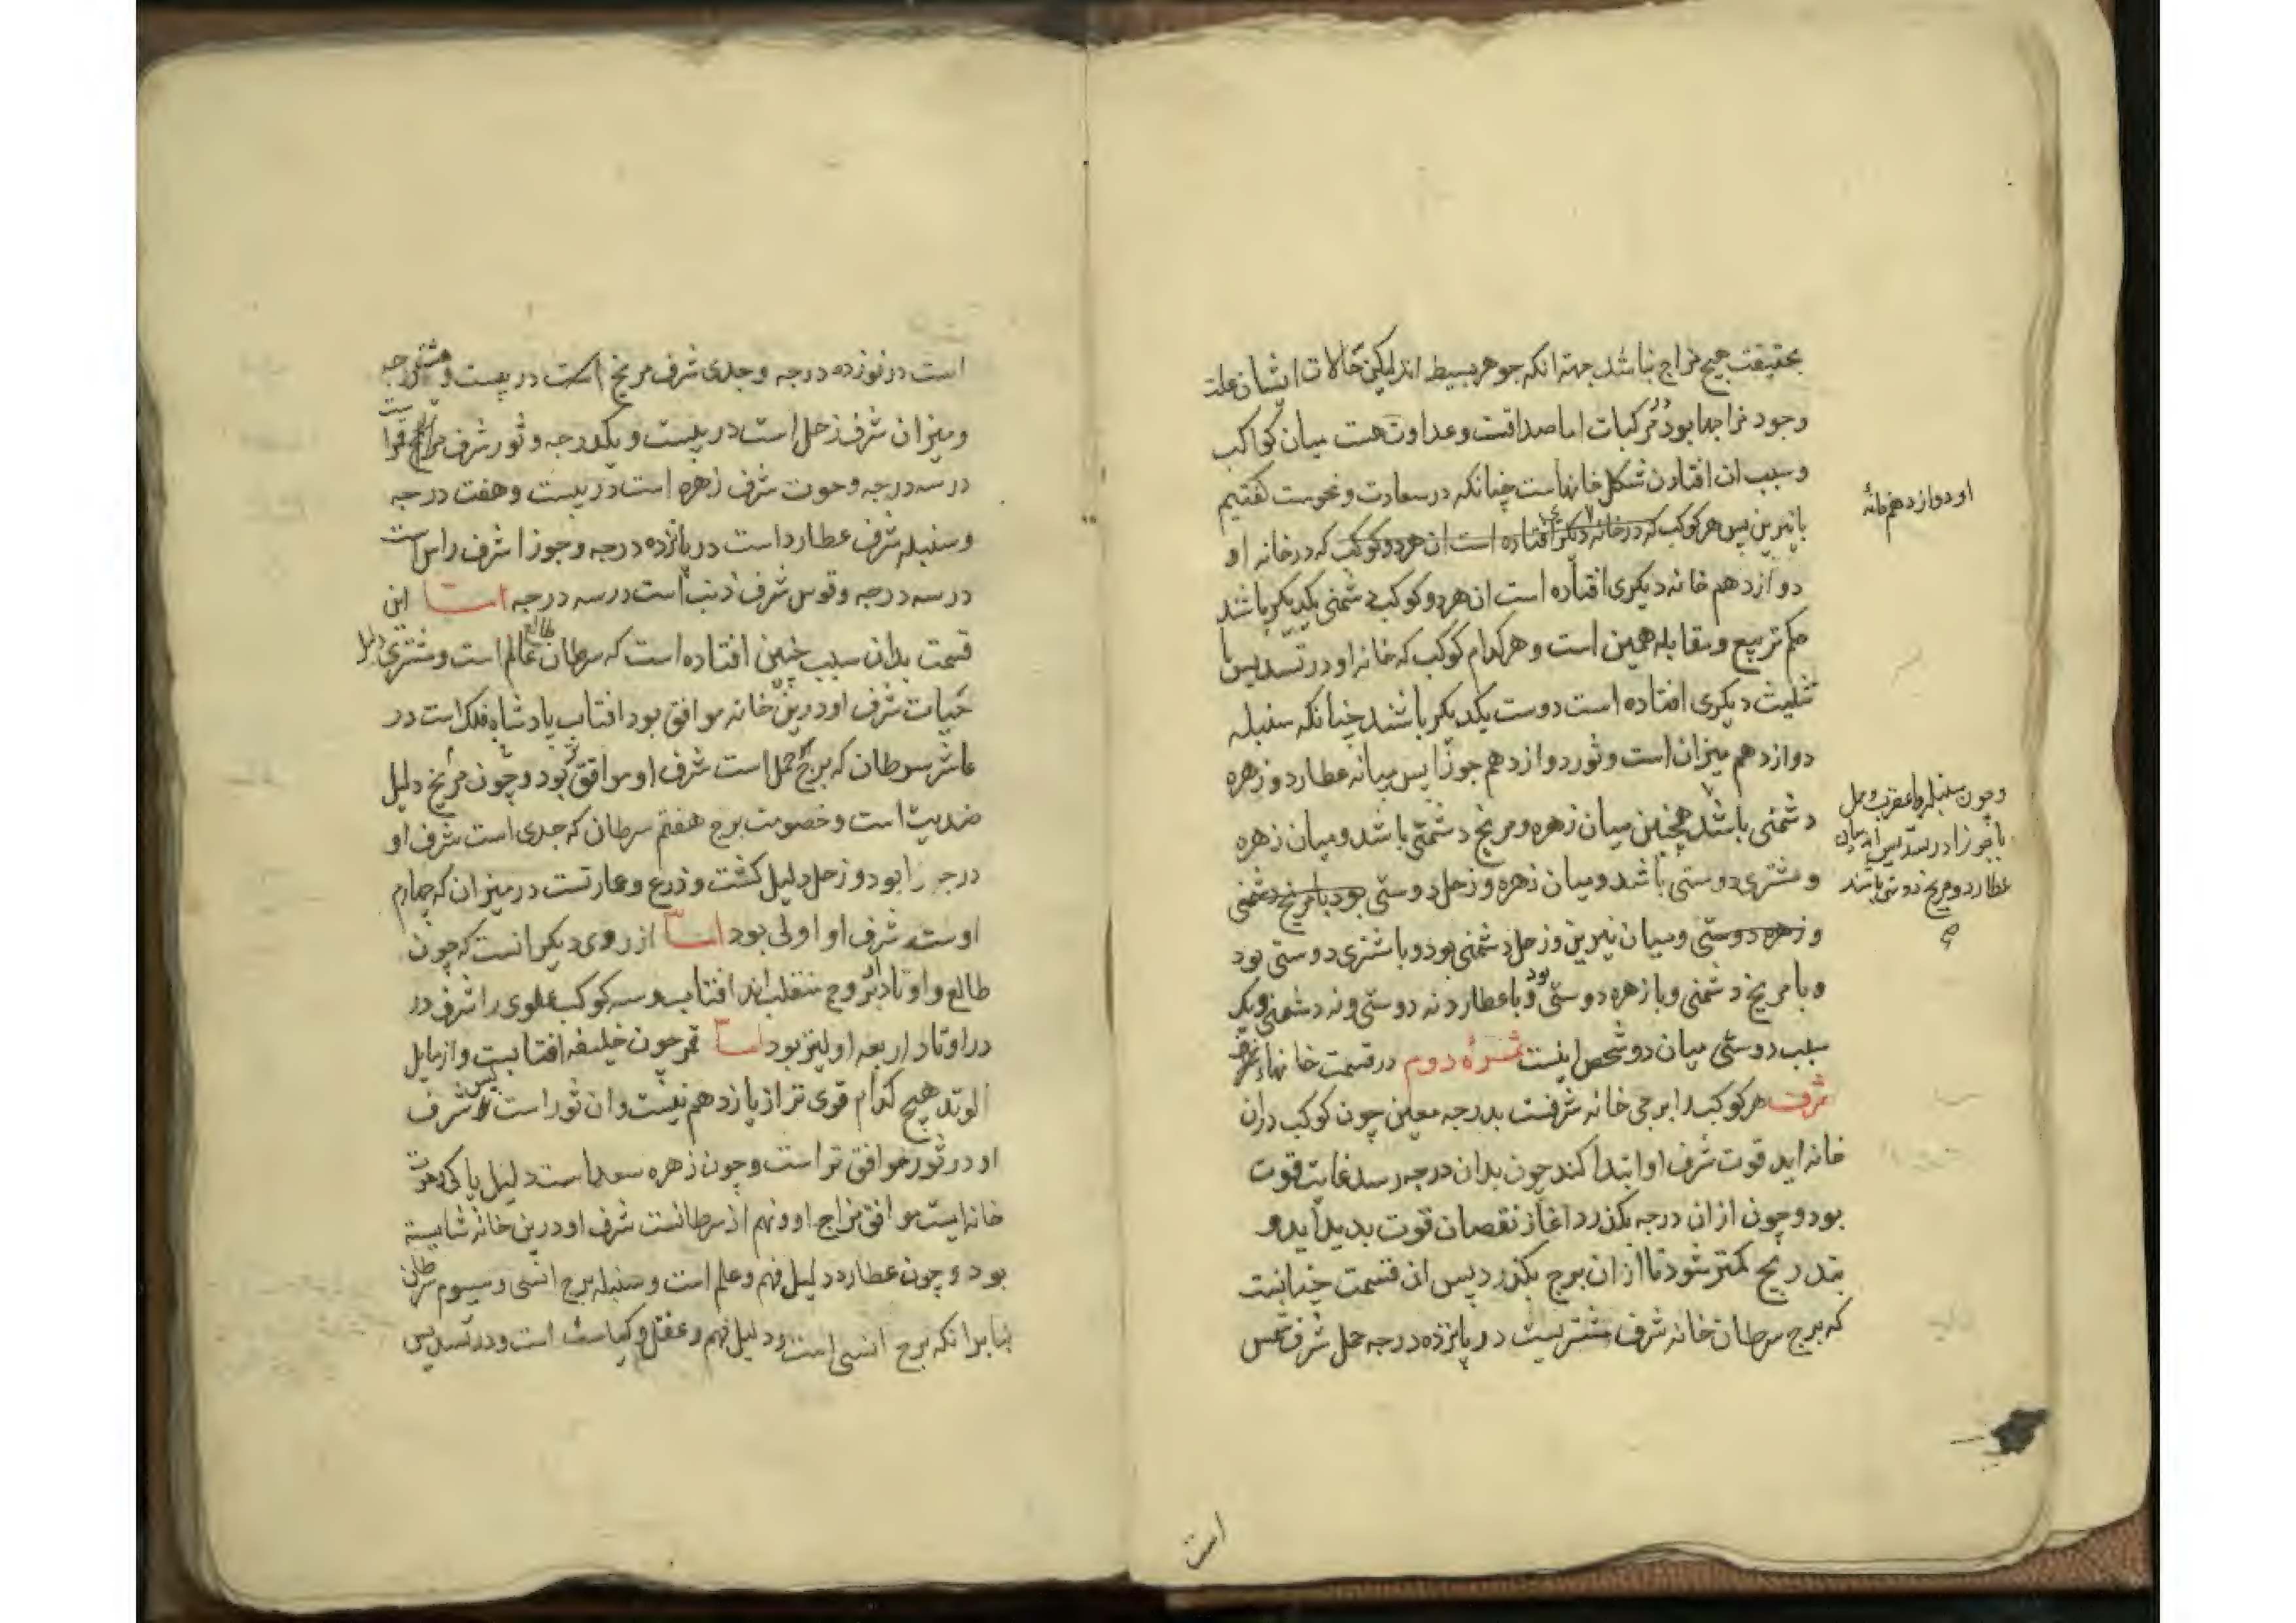 بحقیقت هیچ مزاج نباشد جهة انکه جوهر بسیط اند لیکن حالات ایشان علت
وجود مزاجها بود در مرکبات اما صداقت و عداوت هست میان کواکب
و سبب ان افتادن شکل خانهاست چنانکه در سعادت و نحوست گفتیم
با نیرین پس هر کوکب که در خانه دیگر افتاده است ان هر دو کوکب که در خانه او
او دوازدهم خانهٔ
دوازدهم خانه دیکری افتاده است ان هر دو کوکب دشمنی یکدیکر باشند
حکم تربیع و مقابله همین است و هر کدام کوکب که خانه او در تسدیس یا
تثلیث دیکری افتاده است دوست یکدیکر باشند چنانکه سنبله
دوازدهم میزان است و ثور دوازدهم جوزا پس میانه عطارد و زهره
دشمنی باشد همچنین میان زهره و مریخ دشمنی باشد و میان زهره
و مشتری دوستی باشد و میان زهره و زحل دوستی بود با مریخ دشمنی
و چون سنبله با عقرب و حمل
با جوزا در تسدیس اند میان
عطارد و مریخ دوستی باشد
صح
و زهره دوستی و میان نیرین و زحل دشمنی بود و با مشتری دوستی بود
و با مریخ دشمنی و با زهره دوستی بود و با عطارد نه دوستی و نه دشمنی و یک
سبب دوستی میان دو شخص اینست ثمرهٔ دوم در قسمت خانهاء
شرف هر کوکب را برجی خانه شرفست بدرجه معین چون کوکب دران
خانه اید قوت شرف او ابتدا کند چون بدان درجه رسد غایت قوت
بود و چون از ان درجه بکذرد اغاز نقصان قوت بدید اید و
بتدریج کمتر شود تا از ان برج بکذرد پس ان قسمت چنانست
که برج سرطان خانه شرف مشتریست در پانزده درجه حمل شرف شمس
است
است در نوزده درجه و جدی شرف مریخ است در بیست و هشت درجه
و میزان شرف زحل است در بیست و یکدرجه و ثور شرف قمر است
در سه درجه و حوت شرف زهره است در بیست و هفت درجه
و سنبله شرف عطارد است در پانزده درجه و جوزا شرف راس است
در سه درجه و قوس شرف ذنب است در سه درجه اما این
قسمت بدان سبب چنین افتاده است که سرطان طالع عالم است و مشتری دلیل
حیات شرف او درین خانه موافق بود افتاب پادشاه فلک است در
عاشر سرطان که برج حمل است شرف او موافق بود و چون مریخ دلیل
ضدیت است و خصومت برج هفتم سرطان که جدی است شرف او
درجه را بود و زحل دلیل کشت و زرع و عمارتست در میزان که چهارم
اوست شرف او اولی بود اما از روی دیکر انست که چون
طالع و اوتاد بروج منقلب اند افتاب و سه کوکب علوی را شرف در
در اوتاد اربعه اولیتر بود اما قمر چون خلیفه افتابست و از مایل
الوتد هیچ کدام قوی تر از یازدهم نیست و ان ثور است پس شرف
او در ثور موافق تر است و چون زهره سعد است دلیل پاکی حوت
خانه ایست موافق مزاج او و نهم از سرطانست شرف او درین خانه شایسته
بود و چون عطارد دلیل فهم و علم است و سنبله برج انسی و سیوم سرطان
بنابر انکه برج انسی است و دلیل فهم و عقل و کیاست است و در تسدیس